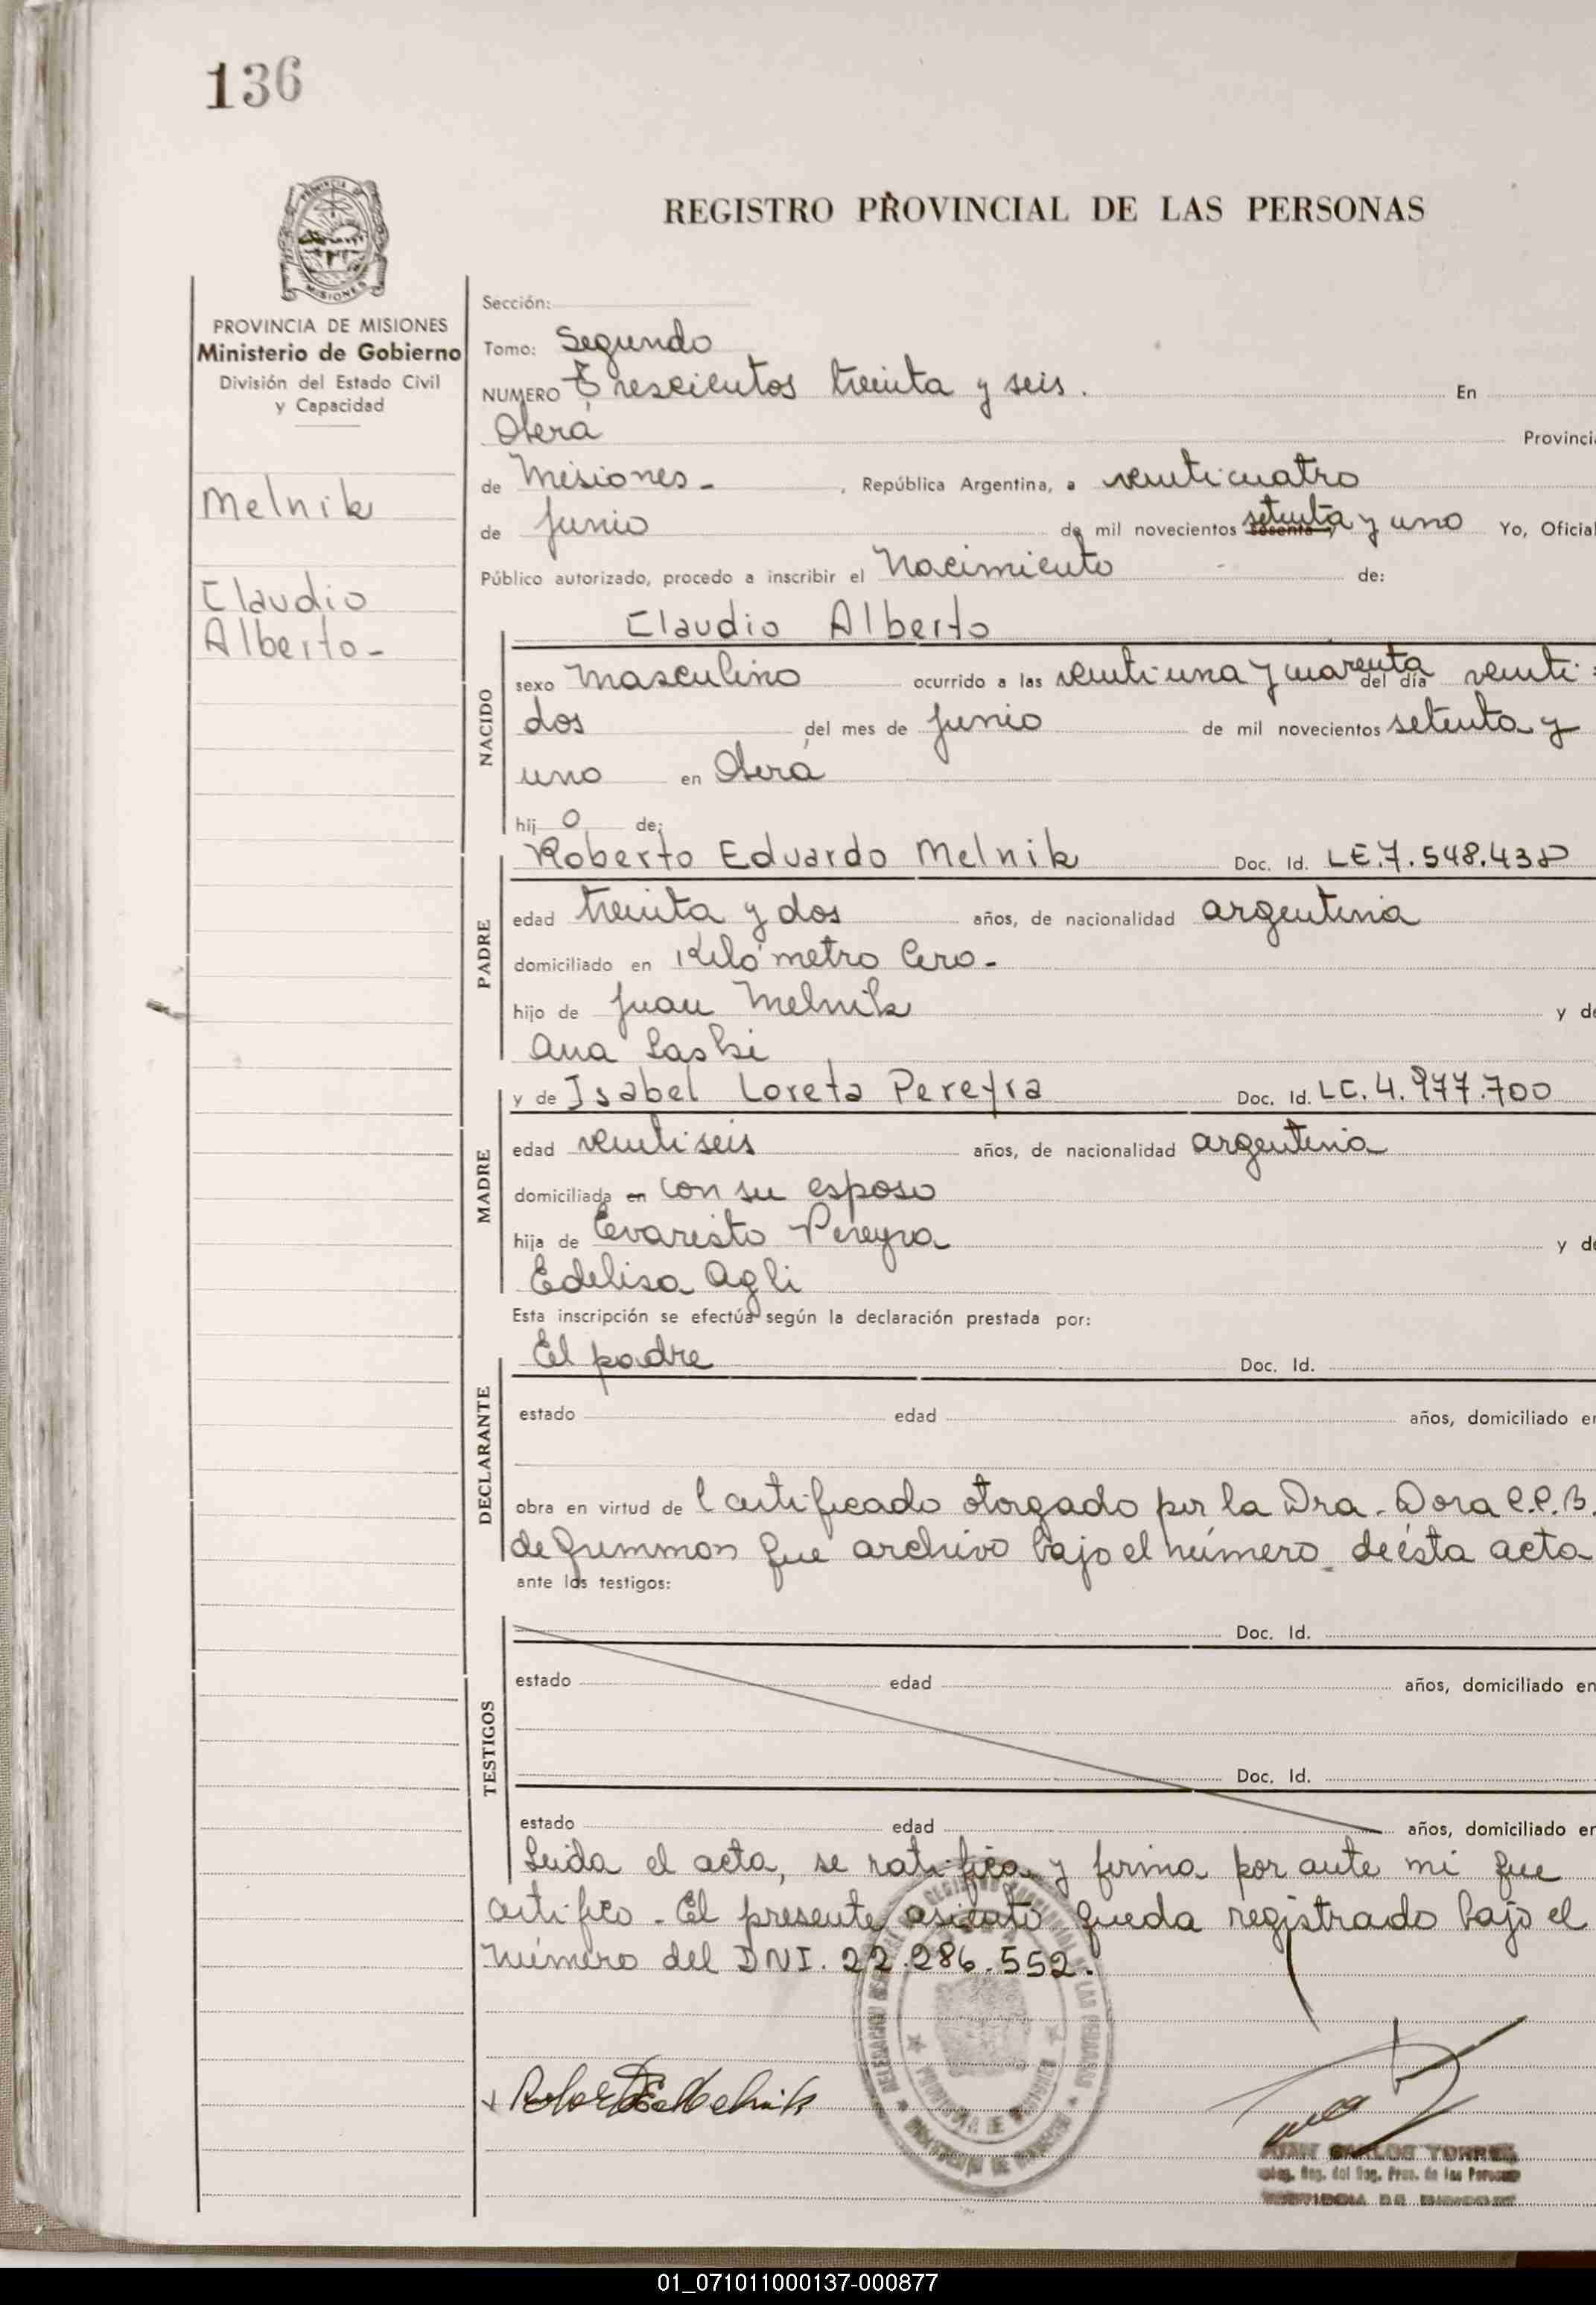 136
REGISTRO PROVINCIAL DE LAS PERSONAS
PROVINCIA DE MISIONES
Ministerio de Gobierno
División del Estado Civil
y Capacidad
Melnik
Claudio
Alberto-
Sección:
Tomo: Segundo
NUMERO Trescientos treinta y seis. En
Oberá Provinci
de Misiones- , República Argentina, a veinticuatro
de Junio de mil novecientos sesenta y setenta y uno Yo, Oficial
Público autorizado, procedo a inscribir el Nacimiento de:
Claudio Alberto
NACIDO
sexo Masculino ocurrido a las veintiuna y cuarenta del día veinti=
dos del mes de Junio de mil novecientos setenta y
uno en Oberá
hij o de:
PADRE
Roberto Eduardo Melnik Doc. Id. LE.7.548.438
edad treinta y dos años, de nacionalidad argentina
domiciliado en Kilómetro Cero-
hijo de Juan Melnik y de
Ana Laski
MADRE
y de Isabel Loreta Pereyra Doc. Id. LC. 4.977.700
edad veintiseis años, de nacionalidad argentina
domiciliada en con su esposo
hija de Evaristo Pereyra y de
Edelisa Agli
Esta inscripción se efectúa según la declaración prestada por:
DECLARANTE
El padre Doc. Id.
estado edad años, domiciliado en
obra en virtud de Certificado otorgado por la Dra. Dora C.P.B.
de que archivo bajo el número de ésta acta
ante los testigos:
TESTIGOS
Doc. Id.
estado edad años, domiciliado en
Doc. Id.
estado edad años, domiciliado en
Leida el acta, se ratifica y firma por ante mi que
certifico. El presente asiento queda registrado bajo el
número del DNI. 22.286.552.
Roberto E Melnik
JUAN CARLOS TORRES
Reg. del Reg. Prov. de las Personas
01_071011000137-000877